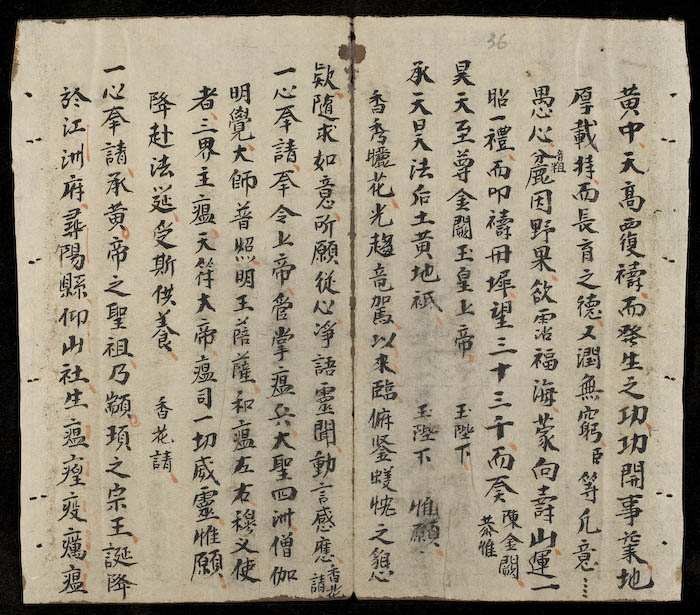 36
黄中天高西復禱而發生之功功開事業地
厚載持而長育之德又潤無窮臣等凡意……
愚心麄音粗因野果飲霑福海蒙向壽山運一
昭一禮而叩禱冊墀望三十三午而奏陳金闕恭惟
昊天至尊金闕玉皇上帝 玉陛下
承天昊法后土黄地祇 玉陛下 惟願
香秀騰花光趨竜駕以來臨俯鉴蟻愧之貌
欵随求如意所願從心净語靈聞動言感應香花請
一心奉請奉令上帝管掌瘟兵大聖四洲僧伽
明覺大師普照明王菩薩和瘟左右穆义使
者三界主瘟天符大帝瘟司一切威靈惟願
降赴法筵受斯供養 香花請
一心奉請承黄帝之聖祖乃顓頊之宗王誕降
於江洲府尋陽縣仰山社生瘟㾮疫癘瘟